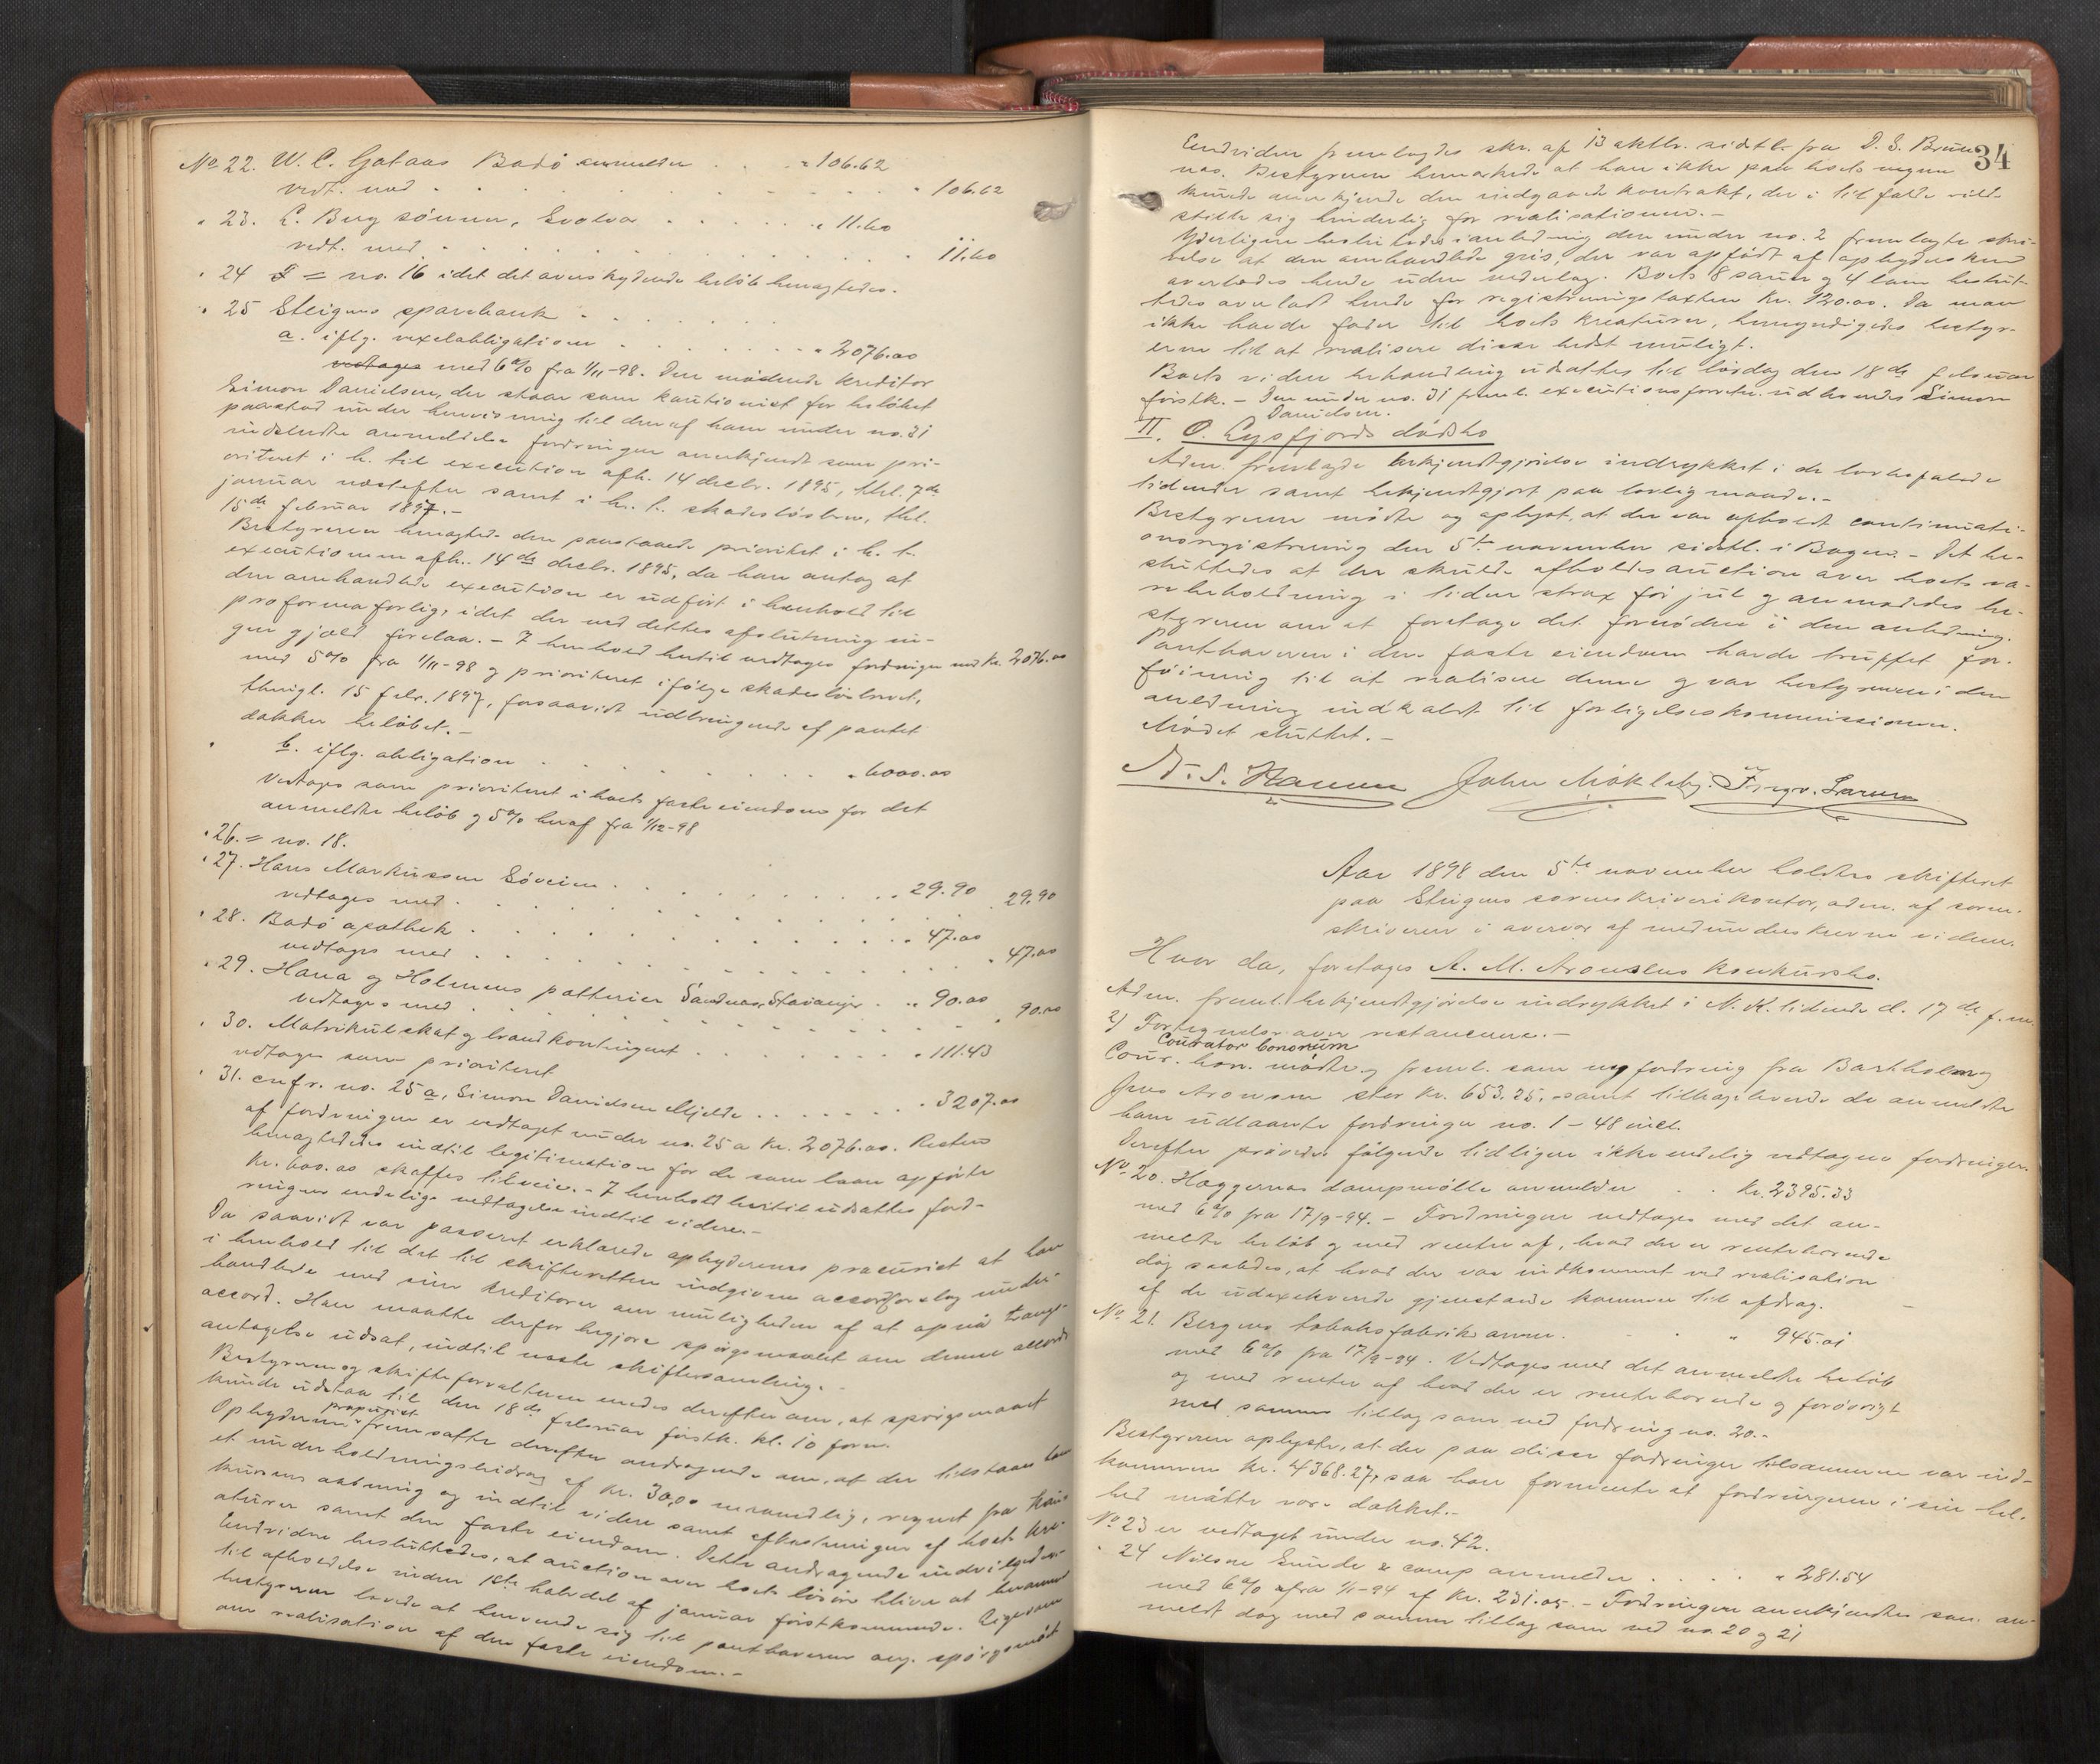 No 22. W. C. Gotaas Bodö anmelder . . " 106.62
vedt. med . . . " 106.62
" 23. C. Berg sönner, Svolvær . . . " 11.60
vedt. med . . . " 11.60
" 24 = no. 16 idet det overskydende beløb benægtedes.
" 25 Steigens sparebank . . .
a. iflg. vexelobligation . . . " 2076.00
vedtages med 6% fra 1/11-98. Den mødende kreditor
Simon Danielsen, der staar som kautionist for beløbet
paastod under henvisning til den af ham under no. 31
indsendte anmeldelse fordringen anerkjendt som pri-
oriteret i h. til execution afh. 14 decbr. 1895, thl. 7de
januar næstefter samt i h. t. skadesløsbrev, thl.
15de februar 1897.-
Bestyreren benægtede den paastaaede prioritet i h. t.
executionen afh. 14de decbr. 1895, da han antog at
den omhandlede execution er udført i henhold til
proforma forlig, idet der ved dettes afslutning in-
gen gjæld forelaa. - I henhold hertil vedtages fordringen med kr. 2076.00
med 5% fra 1/11-98 og prioriteret ifølge skadesløsbrevet,
thingl. 15 febr. 1897, forsaavidt udbringende af pantet
dækker beløbet.-
b. iflg. obligation . . . " 6000.00
Vedtages som prioriteret i boets faste eiendom for det
anmeldte beløb og 5% heraf fra 1/12-98
" 26. = no. 18.
" 27. Hans Markussen Löveien . . . " 29.90
vedtages med . . . " 29.90
" 28. Bodö apothek . . . " 47.00
vedtages med . . . " 47.00
" 29. Hana og Holmens potterier Sandnæs, Stavanger . . " 90.00
vedtages med . . . " 90.00
" 30. Matrikulskat og brandkontingent . . . " 111.43
vedtages som prioriteret
" 31. cnfr. no. 25 a, Simon Danielsen Mjelde . . . " 3207.00
af fordringen er vedtaget under no. 25 a kr. 2076.00. Resten
benægtedes indtil legitimation for de som laan opførte
kr. 600.00 skaffes tilveie. - I henhold hertil udsattes ford-
ringens endelige vedtagelse indtil videre.-
Da saavidt var passeret erklærede opbyderens procurist at han
i henhold til det til skifteretten indgivne accordforslag under-
handlede med sine kreditorer om muligheden af at opnaa tvangs-
accord. Han maatte derfor begjøre spørgsmaalet om denne accords
antagelse udsat, indtil næste skiftesamling.-
Bestyreren og skifteforvalteren enedes derefter om, at spørgsmaalet
kunde udstaa til den 18de februar førstk. kl. 10 form.
Opbyderens procurist fremsatte derefter andragende om, at der tilstaaes ham
et underholdningsbidrag af kr. 30,00 maanedlig, regnet fra kon-
kursens aabning og indtil videre samt afkastningen af boets kre-
aturer samt den faste eiendom. Dette andragende indvilgedes.-
Endvidere besluttedes, at auction over boets løsøre bliver at berammes
til afholdelse inden 1ste halvdel af januar førstkommende. Ligesom
bestyreren lovede at henvende sig til panthaveren ang. spørgsmaalet
om realisation af den faste eiendom.-
34
Endvidere fremlagdes skr. af 13 oktbr. sidstl. fra D. S. Bruun-
næs. Bestyreren bemærkede at han ikke paa boets vegne
kunde anerkjende den indgaaede kontrakt, der i tilfælde vilde
stille sig hinderlig for realisationen.-
Yderligere besluttedes i anledning den under no. 2 fremlagte skri-
velse at den omhandlede gris, der var opfødt af opbyderens kone
overlodes hende uden vederlag. Boets 8 sauer og 4 lam beslut-
tedes overladt hende for registreringstaxten kr. 120.00. Da man
ikke havde foder til boets kreaturer, bemyndigedes besty-
reren til at realisere disse bedst muligt.
Boets videre behandling udsattes til lørdag den 18de februar
førstk. - Den under no. 31 freml. executionsforretn. udlaandes Simon
Danielsen.
II. O. Lysfjords dødsbo
Adm. fremlagde bekjendtgjørelse indrykket i de lovbefalede
tidender samt bekjendtgjort paa lovlig maade.-
Bestyreren mødte og oplyste, at der var afholdt continuati-
onsregistrering den 5te november sidstl. i Bogen. - Det be-
sluttedes at der skulde afholdes auction over boets va-
rebeholdning i tiden strax før jul og anmodedes be-
styreren om at foretage det fornødne i den anledning.
Panthaveren i den faste eiendom havde truffet for-
føining til at realisere denne og var bestyreren i den
anledning indkaldt til forligelseskommissionen.
Mødet sluttet.-
A. S. Hansen John Möklebÿ. Tryggv. Larsen
Aar 1898 den 5te november holdtes skifteret
paa Steigens sorenskriverikontor, adm. af soren-
skriveren i overvær af medunderskrevne vidner.
Hvor da, foretages A. M. Aronsens konkursbo.
Adm. freml. bekjendtgjørelse indrykket i N. K. tidende d. 17de f. m.
2) Fortegnelse over restancerne.-
Courator bonorum
Cour. bon. mødte og freml. som ny fordring fra Bartholom. og
Jens Aronsen stor kr. 653.25, samt tilbageleverede de anmeldte
ham udlaante fordringer no. 1 - 48 incl.
Derefter prøvedes følgende tidligere ikke endelig vedtagne fordringer.
No. 20. Hæggernæs dampmølle anmelder . . kr. 2395.33
med 6% fra 17/9-94. - Fordringen vedtages med det an-
meldte beløb og med renter af, hvad der er rentebærende
dog saaledes, at hvad der var indkommet ved realisation
af de udexekverede gjenstande kommer til afdrag.
No. 21. Bergens tobaksfabrik anm. . . . " 945.01
med 6% fra 17/9-94. Vedtages med det anmeldte beløb
og med renter af hvad der er rentebærende og forøvrigt
med samme tillæg som ved fordring no. 20.-
Bestyreren oplyste, at der paa disse fordringer tilsammen var ind-
kommen kr. 4368.27, saa han formente at fordringerne i sin hel-
hed maatte være dækket.-
No 23 er vedtaget under no. 42.
" 24 Nilsen Sunde & comp anmelder . . . . " 281.54
med 6% fra 1/1-94 af kr. 231.05. - Fordringen anerkjendtes som an-
meldt dog med samme tillæg som ved no. 20 og 21